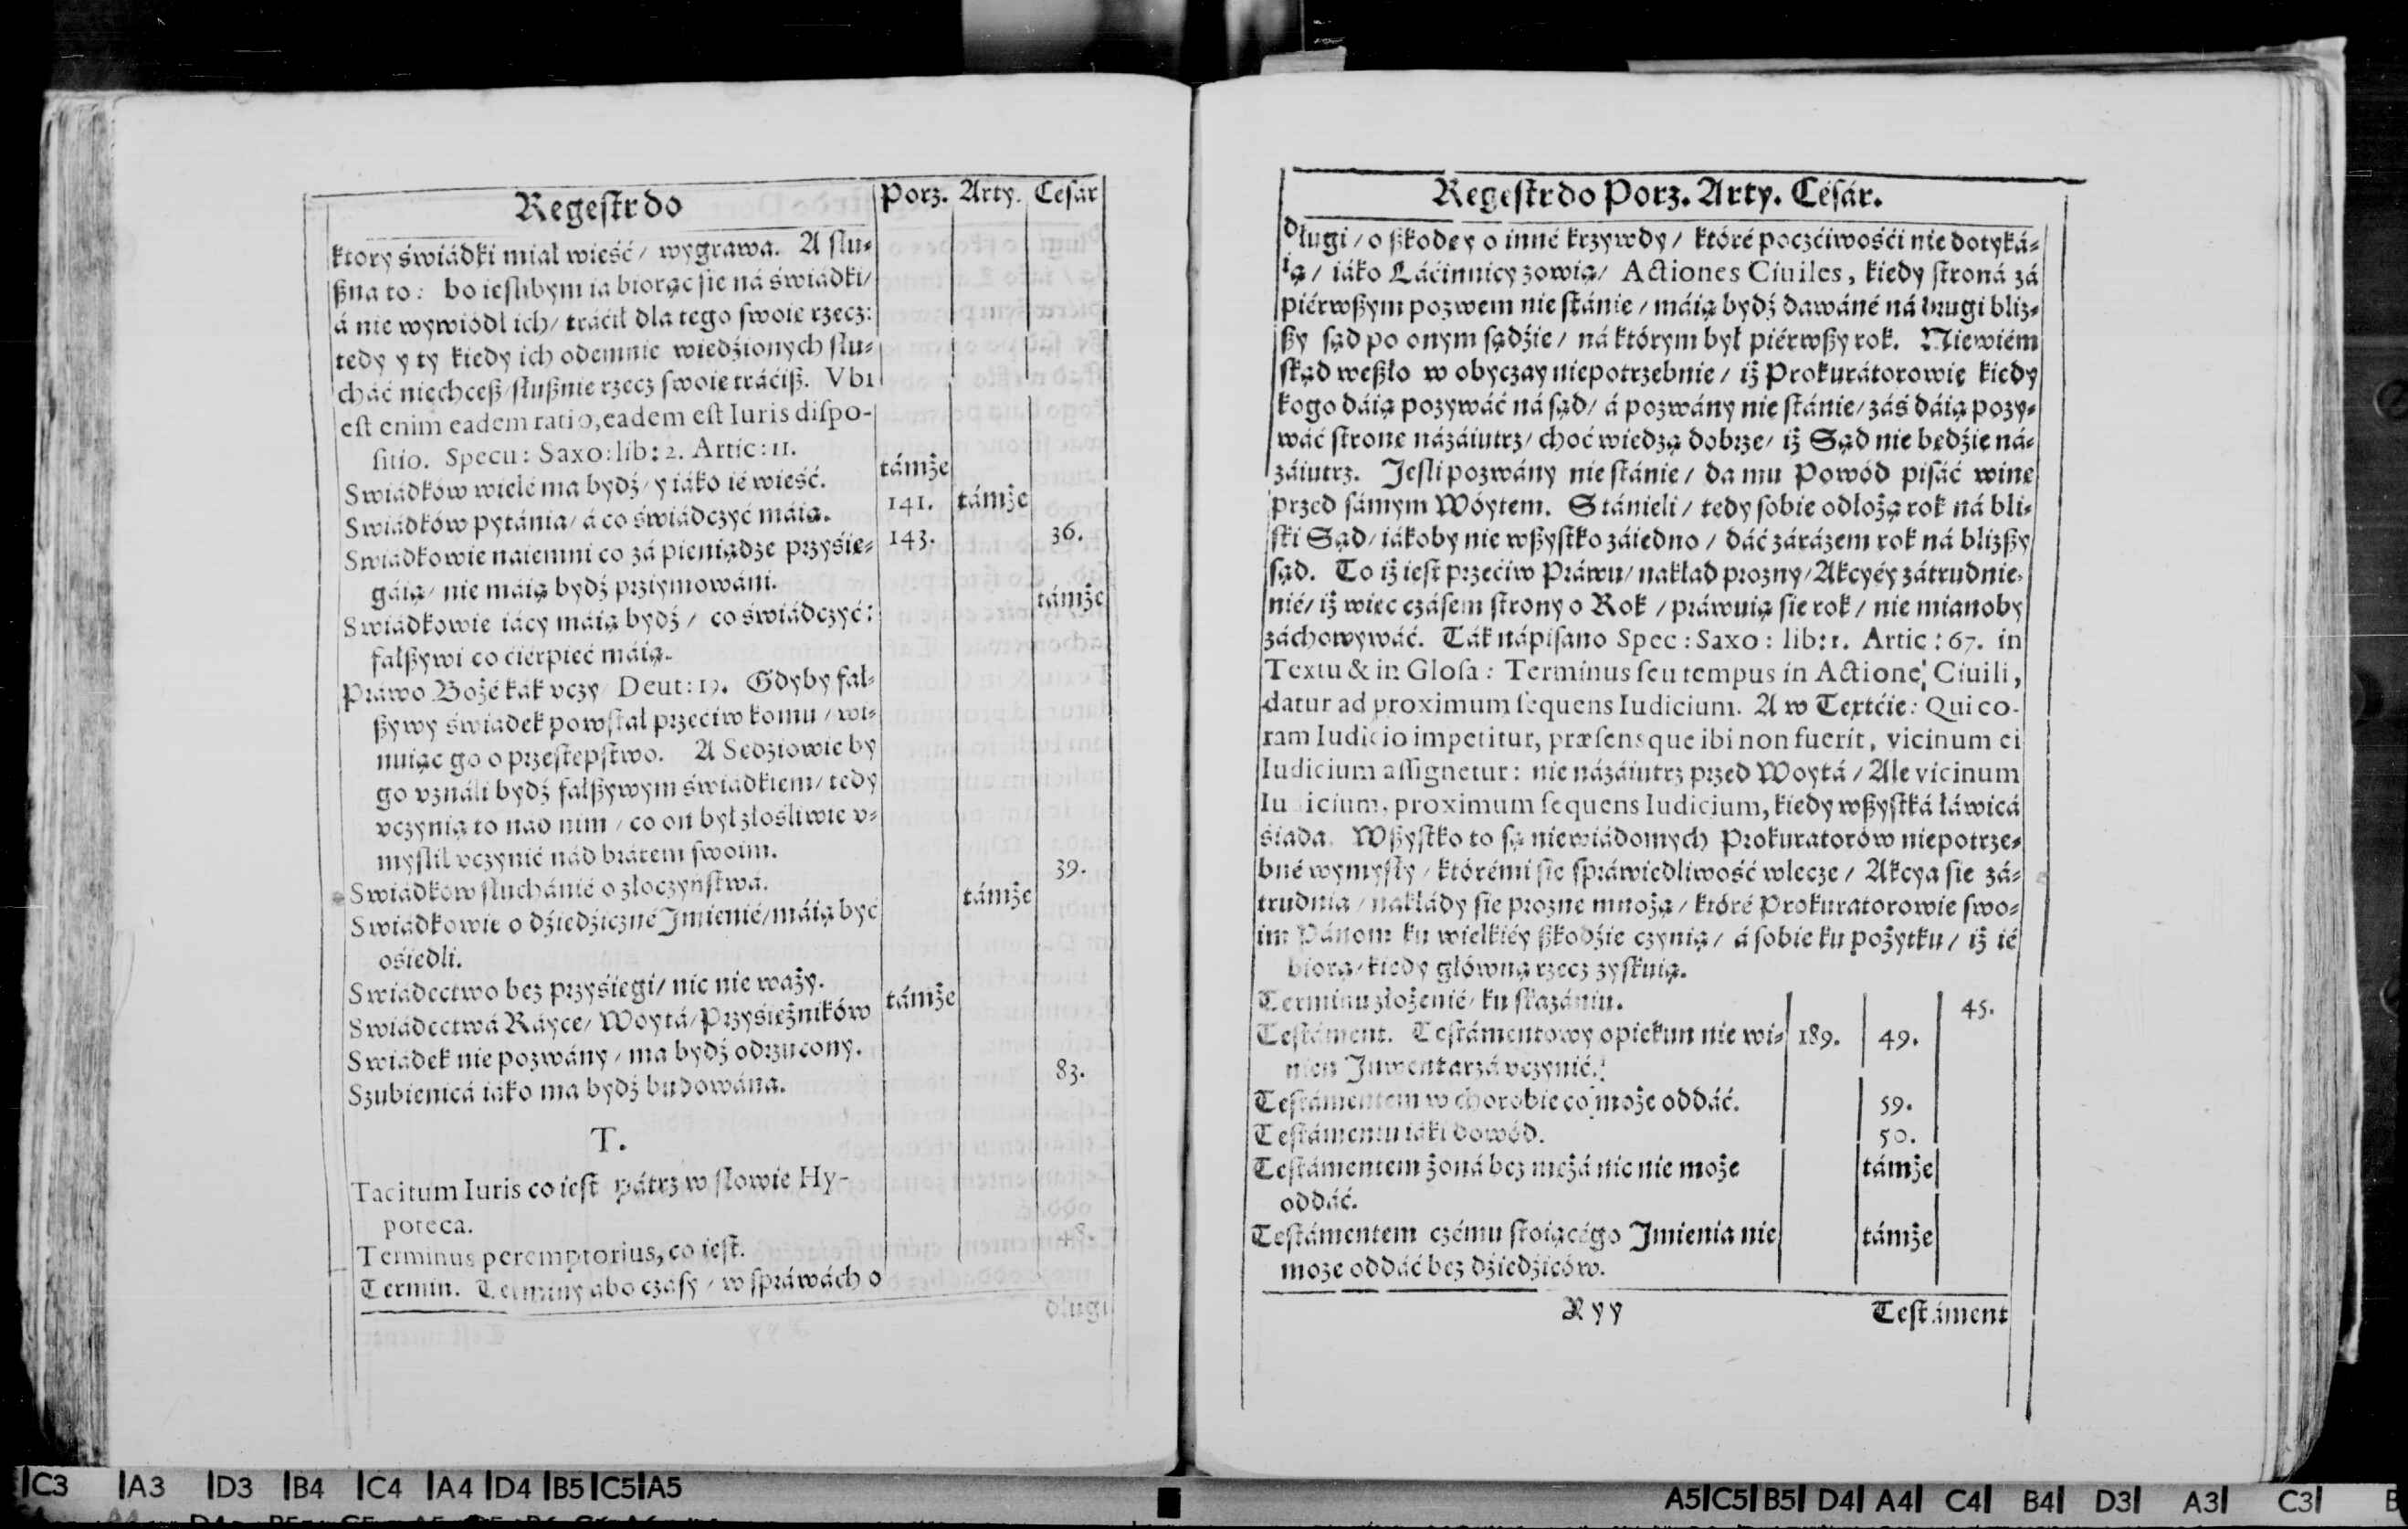 Regestr do Porz. Arty. Cesár
ktory świádki miał wieść/ wygrawa. A słu-
ßna to: bo iesłibym ia biorąc sie ná świádki/
á nie wywiódł ich/ tráćił dla tego swoie rzecz:
tedy y ty kiedy ich odemnie wiedźionych słu-
cháć niechceß/słußnie rzecz swoie tráćiß. Vbi
est enim eadem ratio, eadem est Iuris dispo-
sitio. Specu: Saxo: lib: 2. Artic: 11.
Swiádków wielé ma bydź/ y iáko ié wieść. támże
Swiádków pytánia/ á co świádczyć máią. 141. támże
Swiadkowie naiemni co zá pieniądze przyśie- 143. 36.
gáią/ nie máią bydź prziymowáni.
Swiádkowie iácy máią bydź/ co świádczyć: támże
fałßywi co ćiérpieć máią.
Práwo Bożé kák vczy Deut: 19. Gdyby fał-
ßywy świadek powstał przećiw komu/ wi-
nuiąc go o przestepstwo. A Sedźiowie by
go vználi bydź fałßywym świadkiem/ tedy
vczynią to nad nim/ co on był złośliwie v-
myslił vczynić nád brátem swoim.
Swiádków słuchánié o złoczyństwá. 39.
Swiádkowie o dźiedźiczné Jmienié/ máią być támże
ośiedli.
Swiádectwo bez przyśiegi/ nic nie waży.
Swiádectwá Ráyce/ Woytá/ Przyśiężników támże
Swiadek nie pozwány/ ma bydź odrzucony.
Szubienicá iáko ma bydź budowána. 83.
T.
Tacitum Iuris co iest pátrz w słowie Hy-
poteca.
Terminus peremptorius, co iest. 48.
Termin. Terminy abo czasy/ w spráwách o
długi
Regestr do Porz. Arty. Césár.
długi/ o ßkode y o inné krzywdy/ któré poczćiwośći nie dotyká-
ią/ iáko Láćinnicy zowią/ Actiones Ciuiles, kiedy stroná zá
piérwßym pozwem nie stánie/ máią bydź dawáné ná drugi bliz-
ßy sąd po onym sądźie/ ná którym był piérwßy rok. Niewiém
skąd weßło w obyczay niepotrzebnie/ iż Prokurátorowie kiedy
kogo dáią pozywáć ná sąd/ á pozwány nie stánie/ záś dáią pozy-
wáć strone názáiutrz/ choć wiedzą dobrze/ iż Sąd nie bedźie ná-
záiutrz. Jesli pozwány nie stánie/ da mu Powód pisáć wine
przed sámym Wóytem. Stánieli/ tedy sobie odłożą rok ná bli-
ski Sąd/ iákoby nie wßystko záiedno/ dáć zárázem rok ná blizßy
sąd. To iż iest przećiw Práwu/ nakład prozny/ Akcyéy zátrudnie-
nié/ iż wiec czásem strony o Rok/ práwuią sie rok/ nie mianoby
záchowywáć. Ták nápisano Spec: Saxo: lib: 1. Artic: 67. in
Textu & in Glosa: Terminus seu tempus in Actione Ciuili,
datur ad proximum sequens Iudicium. A w Textćie: Qui co-
ram Iudicio impetitur, præsensque ibi non fuerit, vicinum ei
Iudicium assignetur: nie názáiutrz przed Woytá/ Ale vicinum
Iudicium, proximum sequens Iudicium, kiedy wßystká łáwicá
śiada. Wßystko to są niewiádomych Prokuratorów niepotrze-
bné wymysły/ którémi sie spráwiedliwość wlecze/ Akcya sie zá-
trudnia/ nakłády sie prozne mnożą/ któré Prokuratorowie swo-
im Pánom ku wielkiéy ßkodźie czynią/ á sobie ku pożytku/ iż ié
biorą/ kiedy główną rzecz zyskuią.
Terminu złożenié/ ku skazániu. 45.
Testáment. Testámentowy opiekun nie wi- 189. 49.
nien Jnwentarzá vczynić.
Testámentem w chorobie co może oddáć. 59.
Testámentu iáki dowód. 50.
Testámentem żoná bez mężá nic nie może támże
oddáć.
Testámentem czému stoiącégo Jmienia nie támże
moze oddáć bez dźiedźiców.
R y y Testáment